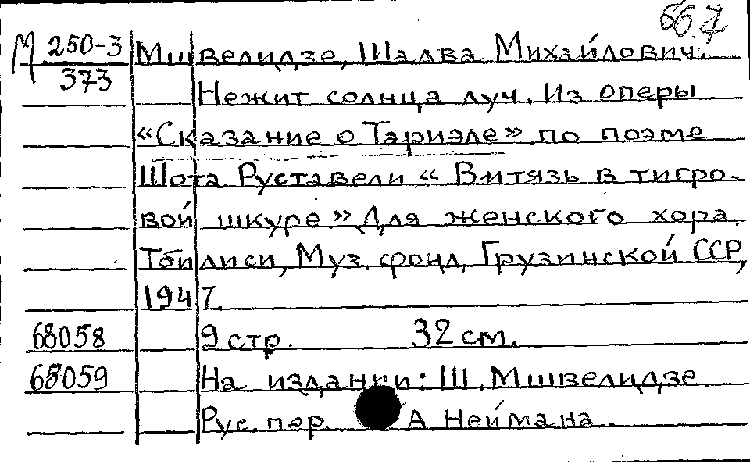 М 250-3 Мшвелидзе, Шалва Михайлович.
373 Нежит солнца луч. Из оперы
«Сказание о Тариэле» по поэме
Шота Руставели «Витязь в тигро-
вой шкуре» Для женского хора.
Тбилиси, Муз. фонд, Грузинской ССР,
1947.
68058 9 стр. 32 см.
68059 На издании: Ш. Мшвелидзе
Рус. пер. А Неймана.